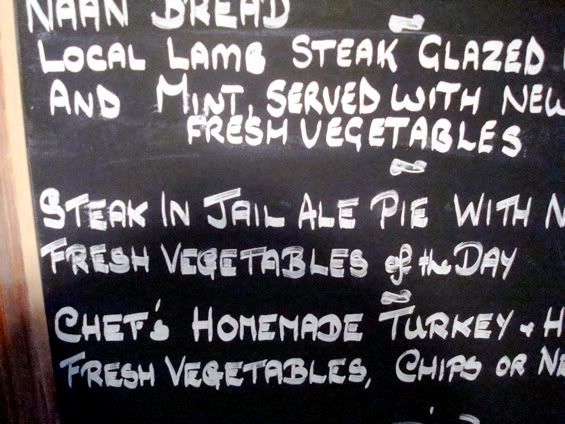 NAAN BREAD
LOCAL LAMB STEAK GLAZED
AND MINT, SERVED WITH NEW
FRESH VEGETABLES
STEAK IN JAIL ALE PIE WITH N
FRESH VEGETABLES of the DAY
CHEF'S HOMEMADE TURKEY + H
FRESH VEGETABLES, CHIPS OR NE